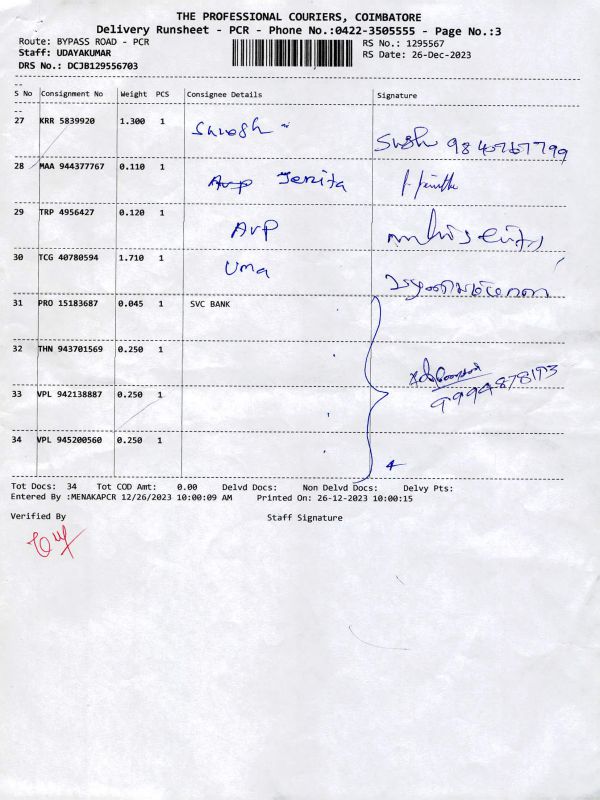 THE PROFESSIONAL COURIERS, COIMBATORE
Delivery Runsheet - PCR - Phone No.:0422-3505555 - Page No.:3
Route: BYPASS ROAD - PCR RS No.: 1295567
Staff: UDAYAKUMAR RS Date: 26-Dec-2023
DRS No.: DCJB129556703
S No Consignment No Weight PCS Consignee Details Signature
27 KRR 5839920 1.300 1
28 MAA 944377767 0.110 1 Arp Jenita
29 TRP 4956427 0.120 1 Arp
30 TCG 40780594 1.710 1 Uma
31 PRO 15183687 0.045 1 SVC BANK
32 THN 943701569 0.250 1
33 VPL 942138887 0.250 1
34 VPL 945200560 0.250 1
4
Tot Docs: 34 Tot COD Amt: 0.00 Delvd Docs: Non Delvd Docs: Delvy Pts:
Entered By :MENAKAPCR 12/26/2023 10:00:09 AM Printed On: 26-12-2023 10:00:15
Verified By Staff Signature